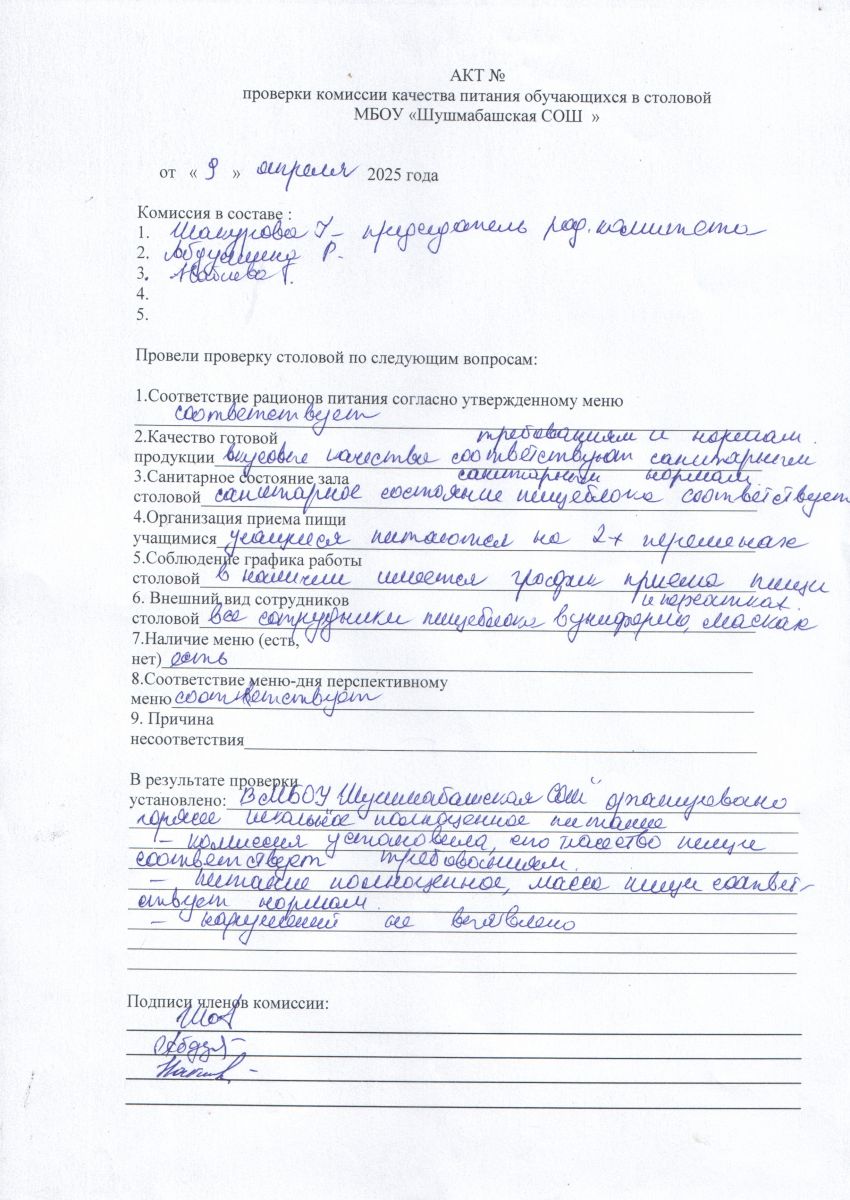 АКТ №
проверки комиссии качества питания обучающихся в столовой
МБОУ «Шушмабашская СОШ »
от « 9 » апреля 2025 года
Комиссия в составе :
1. Г – председатель род. комитета
2. Р.
3. Г.
4.
5.
Провели проверку столовой по следующим вопросам:
1.Соответствие рационов питания согласно утвержденному меню
соответствует
2.Качество готовой требованиям и нормам.
продукции вкусовые качества соответствуют санитарным
3.Санитарное состояние зала санитарным нормам.
столовой санитарное состояние пищеблока соответствует
4.Организация приема пищи
учащимися учащиеся питаются на 2х переменах
5.Соблюдение графика работы
столовой в наличии имеется график приема пищи
6. Внешний вид сотрудников и перчатках.
столовой все сотрудники пищеблока в униформе, масках
7.Наличие меню (есть,
нет) есть
8.Соответствие меню-дня перспективному
меню соответствует
9. Причина
несоответствия
В результате проверки
установлено: В МБОУ Шушмабашская СОШ" организовано
горячее полноценное питание
– комиссия установила, что качество пищи
соответствует требованиям.
– питание полноценное, масса пищи соответ-
ствует нормам.
– нарушений не выявлено
Подписи членов комиссии: